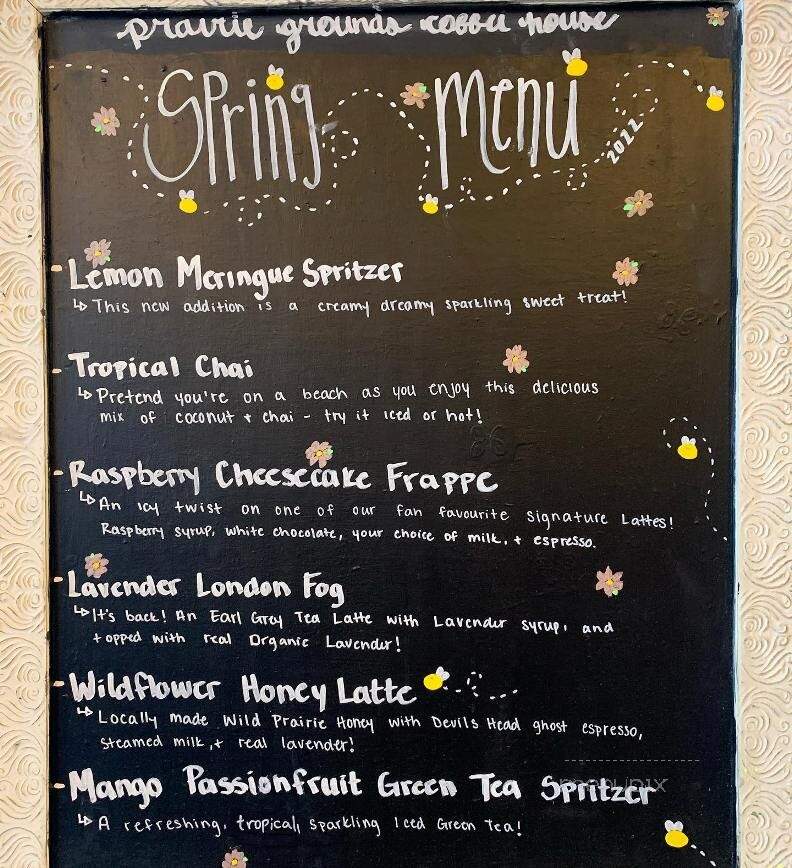 prairie grounds coffee house
Spring Menu
2022
- Lemon Meringue Spritzer
↳ This new addition is a creamy dreamy sparkling sweet treat!
- Tropical Chai
↳ Pretend you're on a beach as you enjoy this delicious
mix of coconut + chai - try it iced or hot!
- Raspberry Cheesecake Frappe
↳ An icy twist on one of our fan favourite signature Lattes!
Raspberry syrup, white chocolate, your choice of milk, + espresso.
- Lavender London Fog
↳ It's back! An Earl Grey Tea Latte with Lavender syrup, and
topped with real Organic Lavender!
- Wildflower Honey Latte
↳ Locally made Wild Prairie Honey with Devils Head ghost espresso,
steamed milk, + real lavender!
- Mango Passionfruit Green Tea Spritzer
↳ A refreshing, tropical, sparkling Iced Green Tea!
menupix